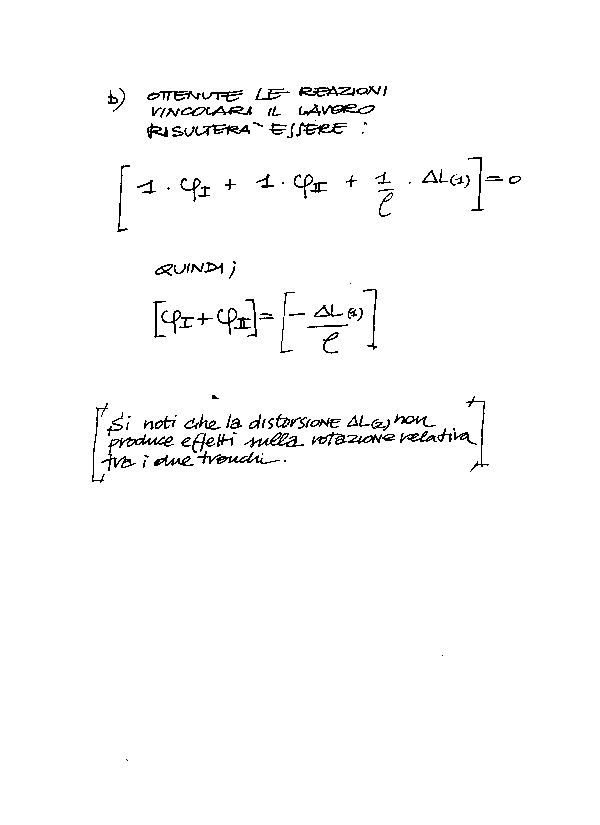 b) OTTENUTE LE REAZIONI
VINCOLARI IL LAVORO
RISULTERA` ESSERE :
[1 · φI + 1 · φII + 1/ℓ · ΔL(1)] = 0
QUINDI ;
[φI + φII] = [- ΔL(1)/ℓ]
Si noti che la DISTORSIONE ΔL(2) non
produce effetti sulla rotazione relativa
tra i due tronchi.